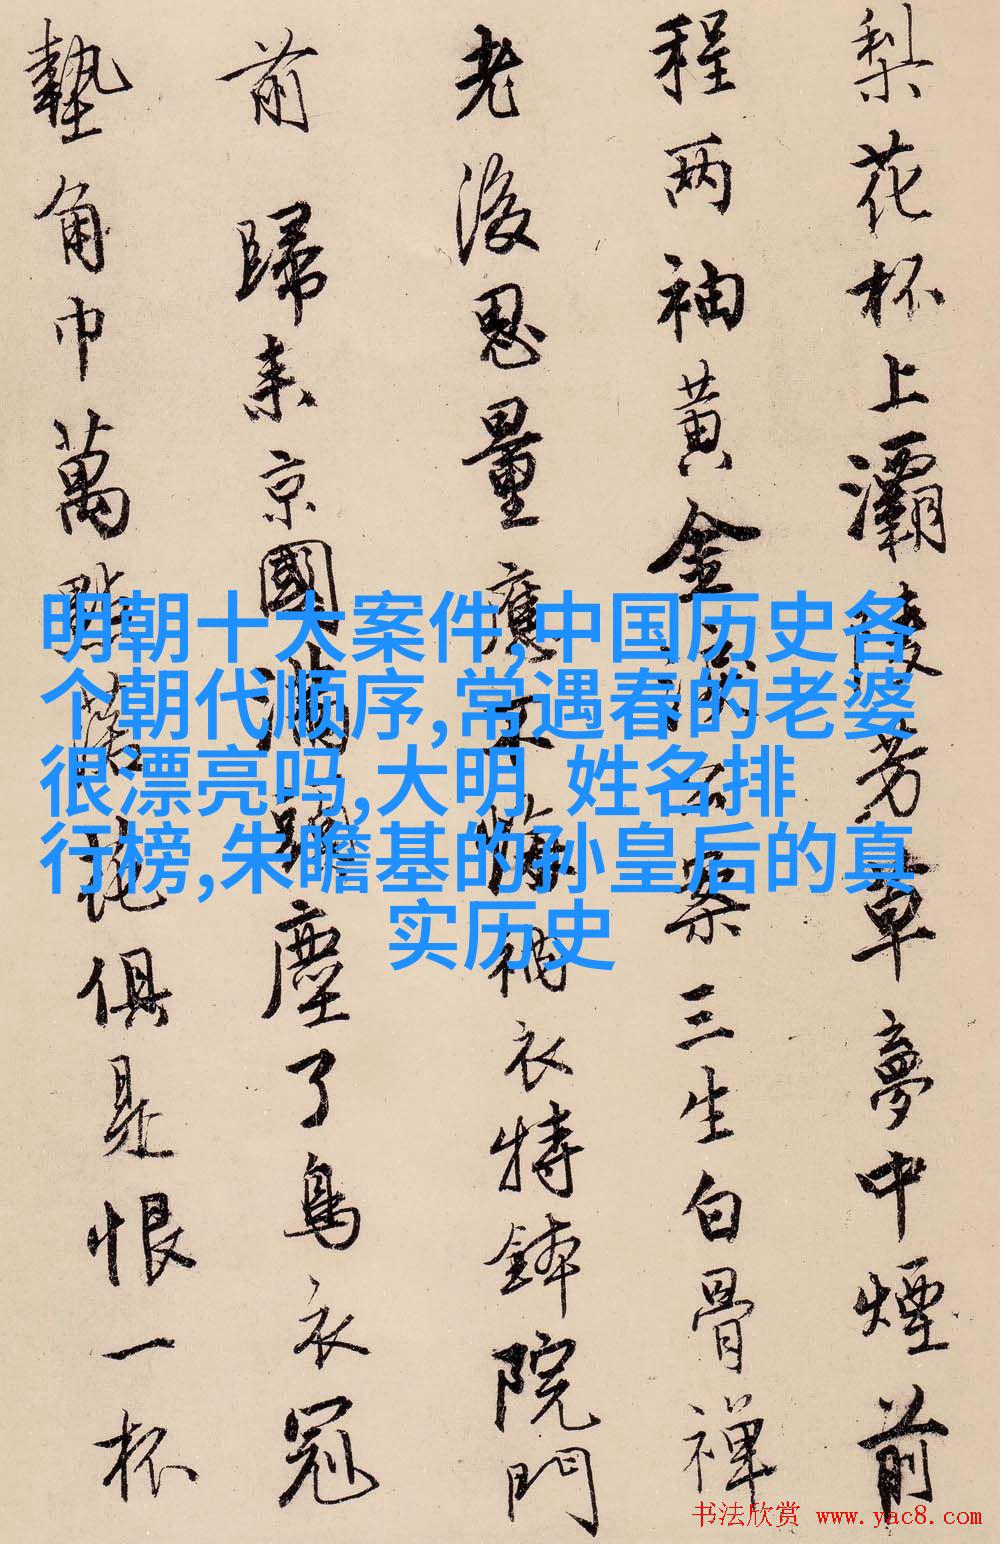 梨花杯上灞陵芳草夢中煙前
程两袖黄金淚公案三生白骨禅
老後思量應不悔衲衣持鉢院門
前 歸来京國滿塵了烏衣冠
墊角巾萬點落花俱是恨一杯
明朝十大案件,中国历史各
个朝代顺序,常遇春的老婆
很漂亮吗,大明 姓名排
行榜,朱瞻基的孙皇后的真
实历史
书法欣赏 www.yac8.com